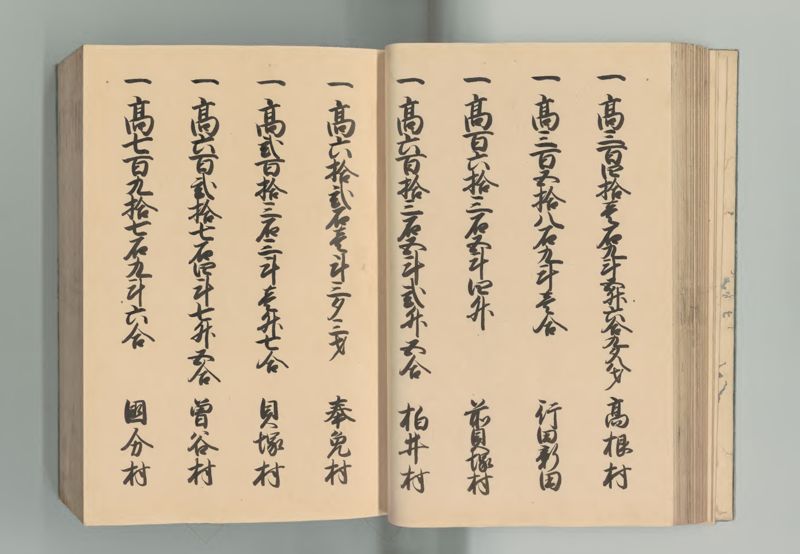 一 高三百四拾壱石九斗五升六合五夕九才 高根村
一 高三百五拾八石九斗壱合 行田新田
一 高百六拾三石五斗四升 前貝塚村
一 高六百拾三石五斗弐升五合 柏井村
一 高六拾弐石壱斗三夕三才 奉免村
一 高弐百拾三石二斗壱升七合 貝塚村
一 高六百弐拾七石四斗七升五合 曽谷村
一 高七百九拾七石九斗六合 國分村